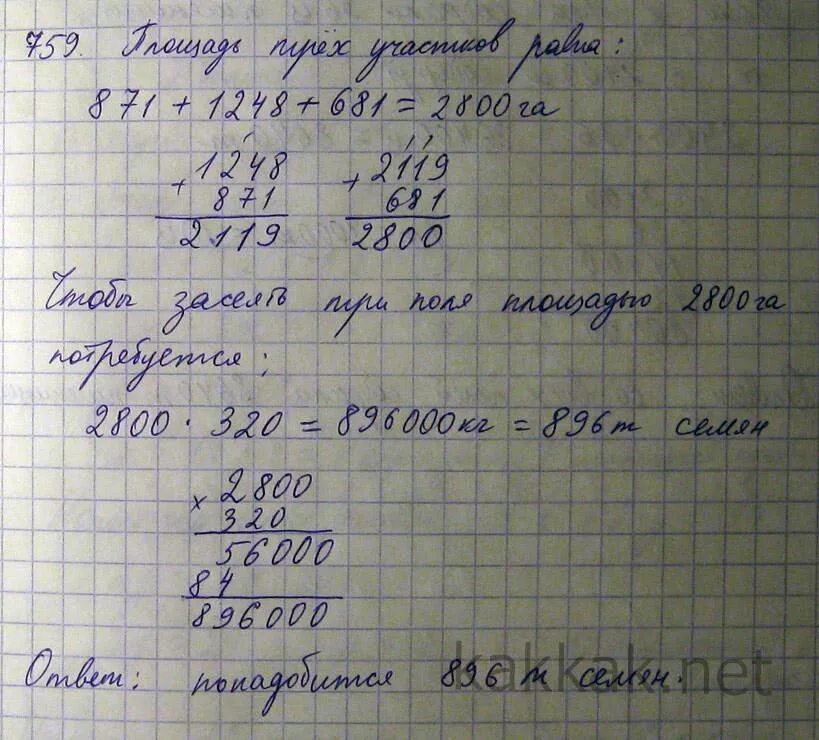 759. Площадь трёх участков равна:
871 + 1248 + 681 = 2800 га
+ 1248
871
2119
+ 2119
681
2800
Чтобы засеять три поля площадью 2800 га
потребуется:
2800 · 320 = 896000 кг = 896 т семян
× 2800
320
56000
84
896000
Ответ: понадобится 896 т семян.
kakkak.net